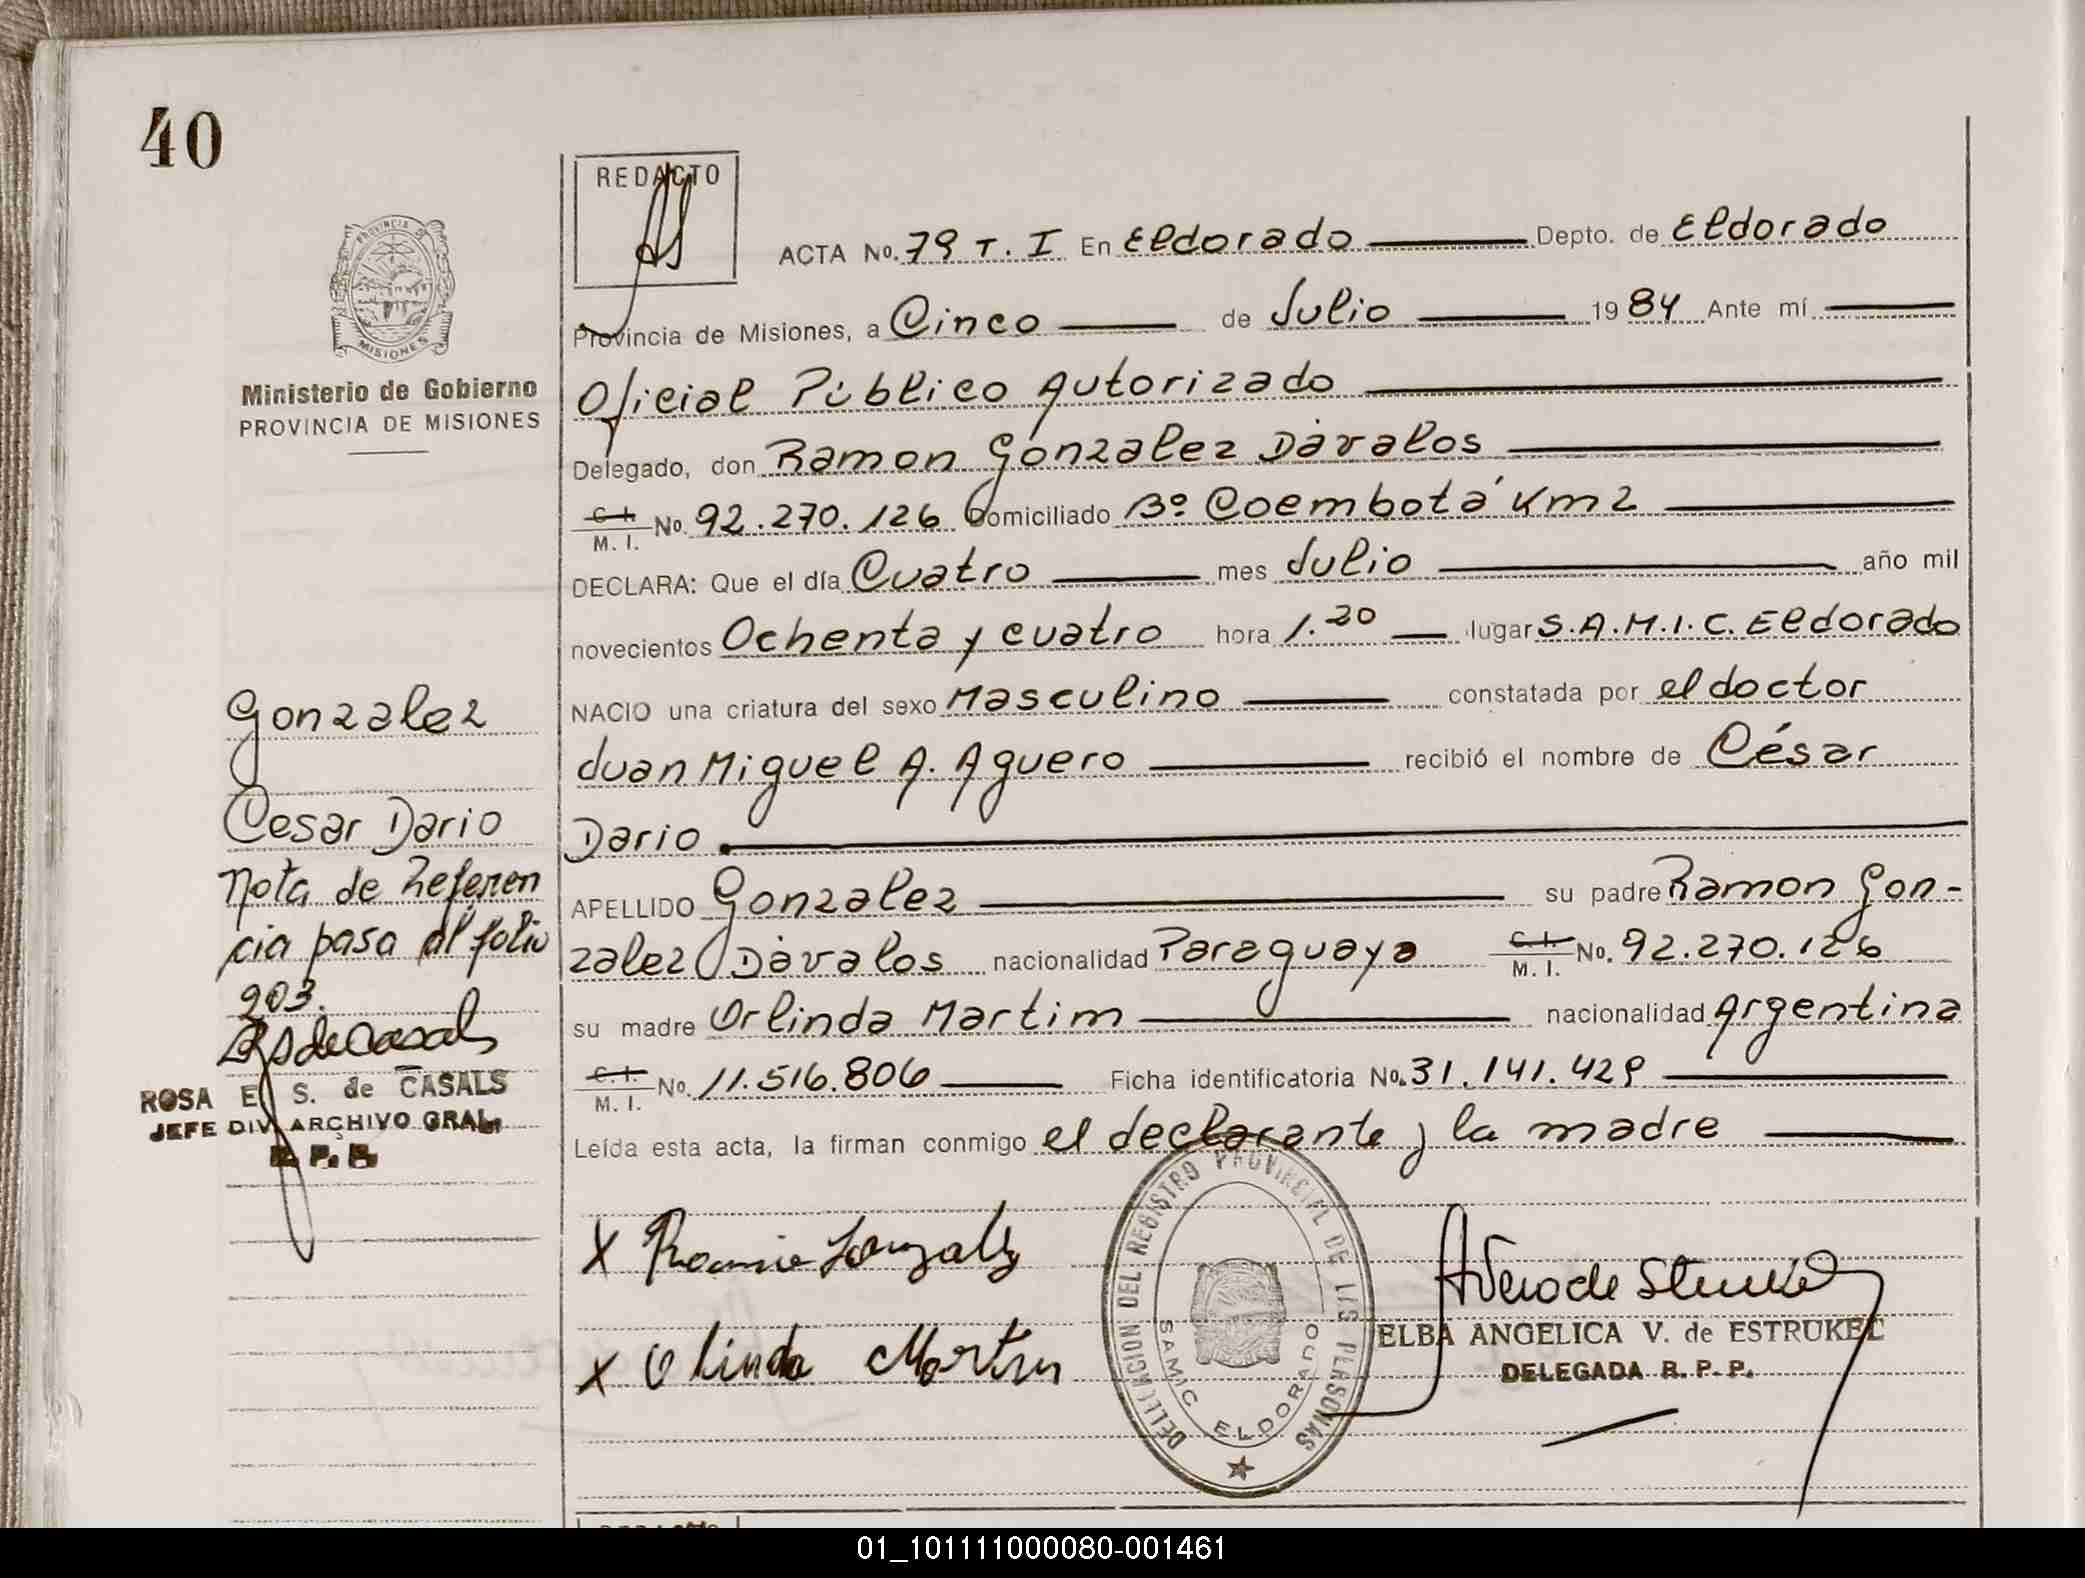 40
PROVINCIA DE
MISIONES
Ministerio de Gobierno
PROVINCIA DE MISIONES
Gonzalez
Cesar Dario
Nota de Referen
cia pasa al folio
203.
ROSA E. S. de CASALS
JEFE DIV. ARCHIVO GRAL.
R. P. P.
REDACTO
ACTA No. 79 T. I En Eldorado Depto. de Eldorado
Provincia de Misiones, a Cinco de Julio 1984 Ante mí
Oficial Público Autorizado
Delegado, don Ramon Gonzalez Dàvalos
C. I. M. I. No. 92.270.126 Domiciliado Bº Coembotá Km 2
DECLARA: Que el día Cuatro mes Julio año mil
novecientos Ochenta y cuatro hora 1.20 lugar S.A.M.I.C. Eldorado
NACIO una criatura del sexo Masculino constatada por el doctor
Juan Miguel A. Aguero recibió el nombre de César
Dario
APELLIDO Gonzalez su padre Ramon Gon-
zalez Dàvalos nacionalidad Paraguaya C. I. M. I. No. 92.270.126
su madre Orlinda Martim nacionalidad Argentina
C. I. M. I. No. 11.516.806 Ficha identificatoria No. 31.141.429
Leída esta acta, la firman conmigo el declarante y la madre
X Ramon Gonzalez
X Olinda Martin
DELEGACION DEL REGISTRO PROVINCIAL DE LAS PERSONAS
SAMIC ELDORADO
ELBA ANGELICA V. de ESTRUKEL
DELEGADA R. P. P.
01_101111000080-001461